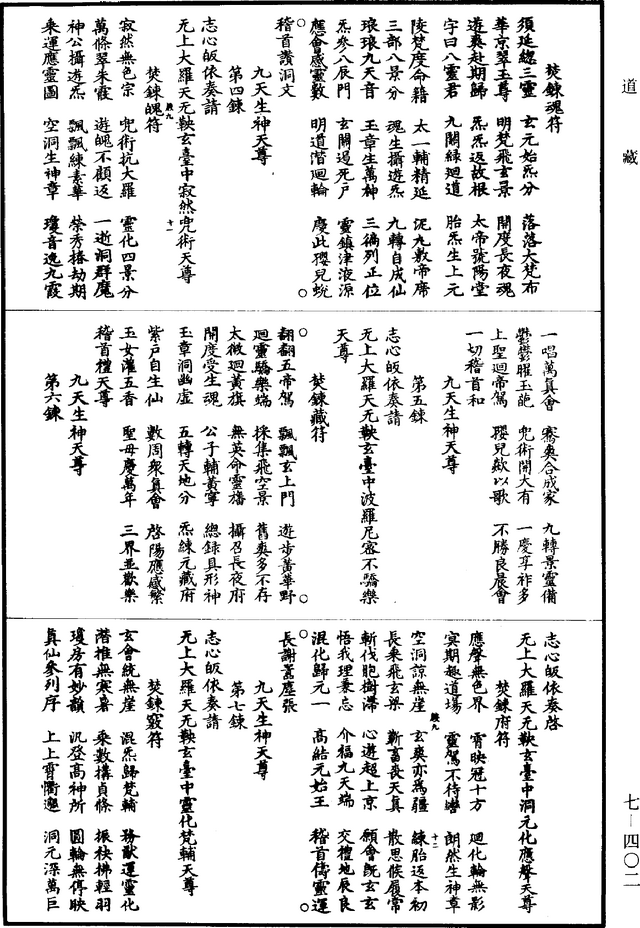 道藏
焚鍊魂符
須延總三靈 玄元始炁分 落落大梵布
華京翠玉尊 明梵飛玄景 開度長夜魂
遊爽赴期歸 炁炁返故根 太帝號陽堂
字曰八靈君 九關緑迴道 胎炁生上元
陵梵度命籍 太一輔精延 泥丸敷帝席
三部八景分 魂生攝遊炁 九轉自成仙
琅琅九天音 玉章生萬神 三徧列正位
炁參八辰門 玄關遏死戸 靈鎮津液源
應會感靈數 明道潛迴輪 慶此瓔兒蛻
稽首讚洞文
九天生神天尊
第四鍊
志心皈依奏請
无上大羅天元𩎟玄臺中寂然兜術天尊
焚鍊魄符
寂然無色宗 兜術抗大羅 靈化四景分
萬條翠朱霞 遊魄不顧返 一逝洞群魔
神公攝遊炁 飄飄練素華 榮秀椿劫期
乘運應靈圖 空洞生神章 瓊音逸九霞
一唱萬真會 騫爽合成家 九轉景靈備
鬱鬱躍玉葩 兜術開大有 一慶享祚多
上聖迴帝駕 瓔兒歛以歌 不勝良晨會
一切稽首和
九天生神天尊
第五鍊
志心皈依奏請
无上大羅天元𩎟玄臺中波羅尼密不驕樂
天尊
焚鍊藏符
翩翩五帝駕 飄飄玄上門 遊步黃華野
迴靈驕樂端 採集飛空景 舊爽多不存
太微迴黃旗 無英命靈旛 攝召長夜府
開度受生魂 公子輔黃寧 總録具形神
玉章洞幽虛 五轉天地分 炁練元藏府
紫戸自生仙 數周衆真會 啓陽應感繁
玉女灌五香 聖母慶萬年 三界並歡樂
稽首禮天尊
九天生神天尊
第六鍊
志心皈依奏啓
无上大羅天元𩎟玄臺中洞元化應聲天尊
焚鍊府符
應聲無色界 霄映冠十方 迴化輪無影
寞期趣道場 靈駕不待轡 朗然生神章
空洞諒無崖 玄爽亦為疆 練胎返本初
長乘飛玄梁 斬畜喪天真 散思候履常
斬伐胞樹滯 心遊超上京 願會既玄玄
悟我理兼忘 介福九天端 交禮地辰良
混化歸元一 高結元始王 稽首儔靈運
長謝蒿塵張
九天生神天尊
第七鍊
志心皈依奏請
无上大羅天元𩎟玄臺中靈化梵輔天尊
焚鍊竅符
玄會統無崖 混炁歸梵輔 務猷運靈化
潛推無寒暑 乘數構貞條 振袂拂輕羽
瓊房有妙韻 汎登高神所 圓輪無停映
真仙參列序 上上霄衢邈 洞元深萬巨
七-四〇二